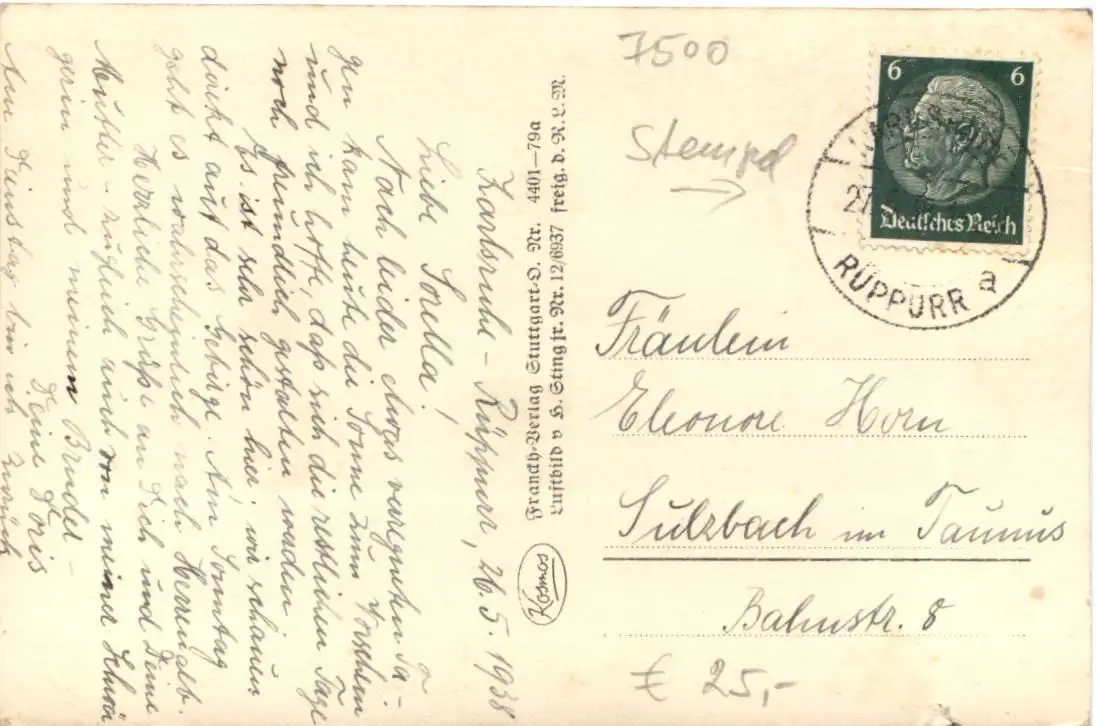 Karlsruhe - Rüppurr, 26.5.1938
Liebe Lorella!
Nach leider etwas verregneten Ta-
gen kam heute die Sonne zum Vorschein
und ich hoffe, daß sich die restlichen Tage
noch freundlich gestalten werden.
Es ist sehr schön hier, wir schauen
direkt auf das Gebirge. Am Sonntag
geht es wahrscheinlich nach Herrenalb.
Herzliche Grüße an Dich und Deine
Mutter - zugleich auch von meiner Schwä-
gerin und meinem Bruder -
Deine Doris
Am Dienstag bin ich zurück
Franckh-Verlag Stuttgart-O. Nr. 4401-79a
Luftbild v H. Sting jr. Nr. 12/6937 freig. d. R. L. M.
Kosmos
7500
Stempel
6 6
Deutsches Reich
27
RÜPPURR a
Fräulein
Eleonore Horn
Sulzbach im Taunus
Bahnstr. 8
€ 25,-